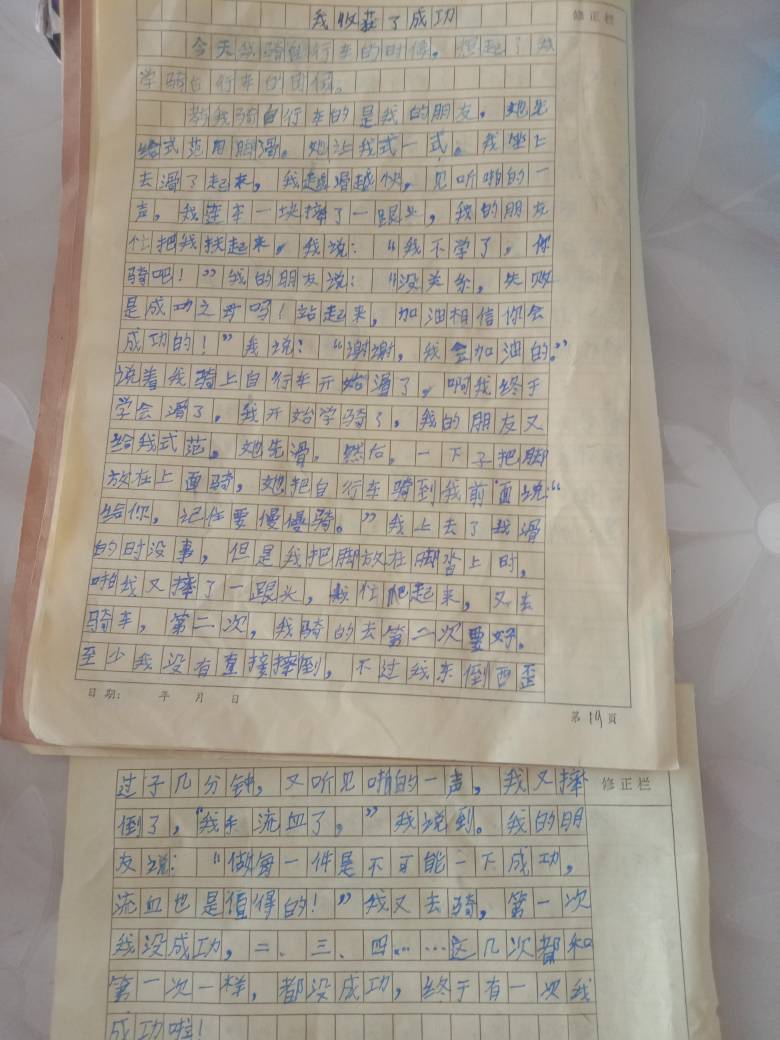 我收获了成功
修正栏
今天我骑自行车的时候。想起了我
学骑自行车的时候。
教我骑自行车的是我的朋友。她先
给式范用脚滑。她让我式一式。我坐上
去滑了起来，我越滑越快，见听啪的一
声，我连车一块摔了一跟头，我的朋友
忙把我扶起来。我说：“我不学了，你
骑吧！”我的朋友说：“没关系，失败
是成功之母吗！站起来，加油相信你会
成功的！”我说：“谢谢，我会加油的。”
说着我骑上自行车开始滑了，啊我终于
学会滑了。我开始学骑了，我的朋友又
给我式范。她先滑，然后，一下子把脚
放在上面骑，她把自行车骑到我前面说：“
给你，记住要慢慢骑。”我上去了我滑
的时没事，但是我把脚放在脚沓上时，
啪我又摔了一跟头，忙爬起来，又去
骑车，第二次，我骑的去第二次要好。
至少我没有直接摔倒，不过我东倒西歪
日期： 年 月 日
第19页
过子几分钟，又听见啪的一声，我又摔
修正栏
倒了，“我手流血了，”我说到。我的朋
友说：“做每一件是不可能一下成功，
流血也是值得的！”我又去骑，第一次
我没成功，二、三、四……这几次都和
第一次一样，都没成功，终于有一次我
成功啦！